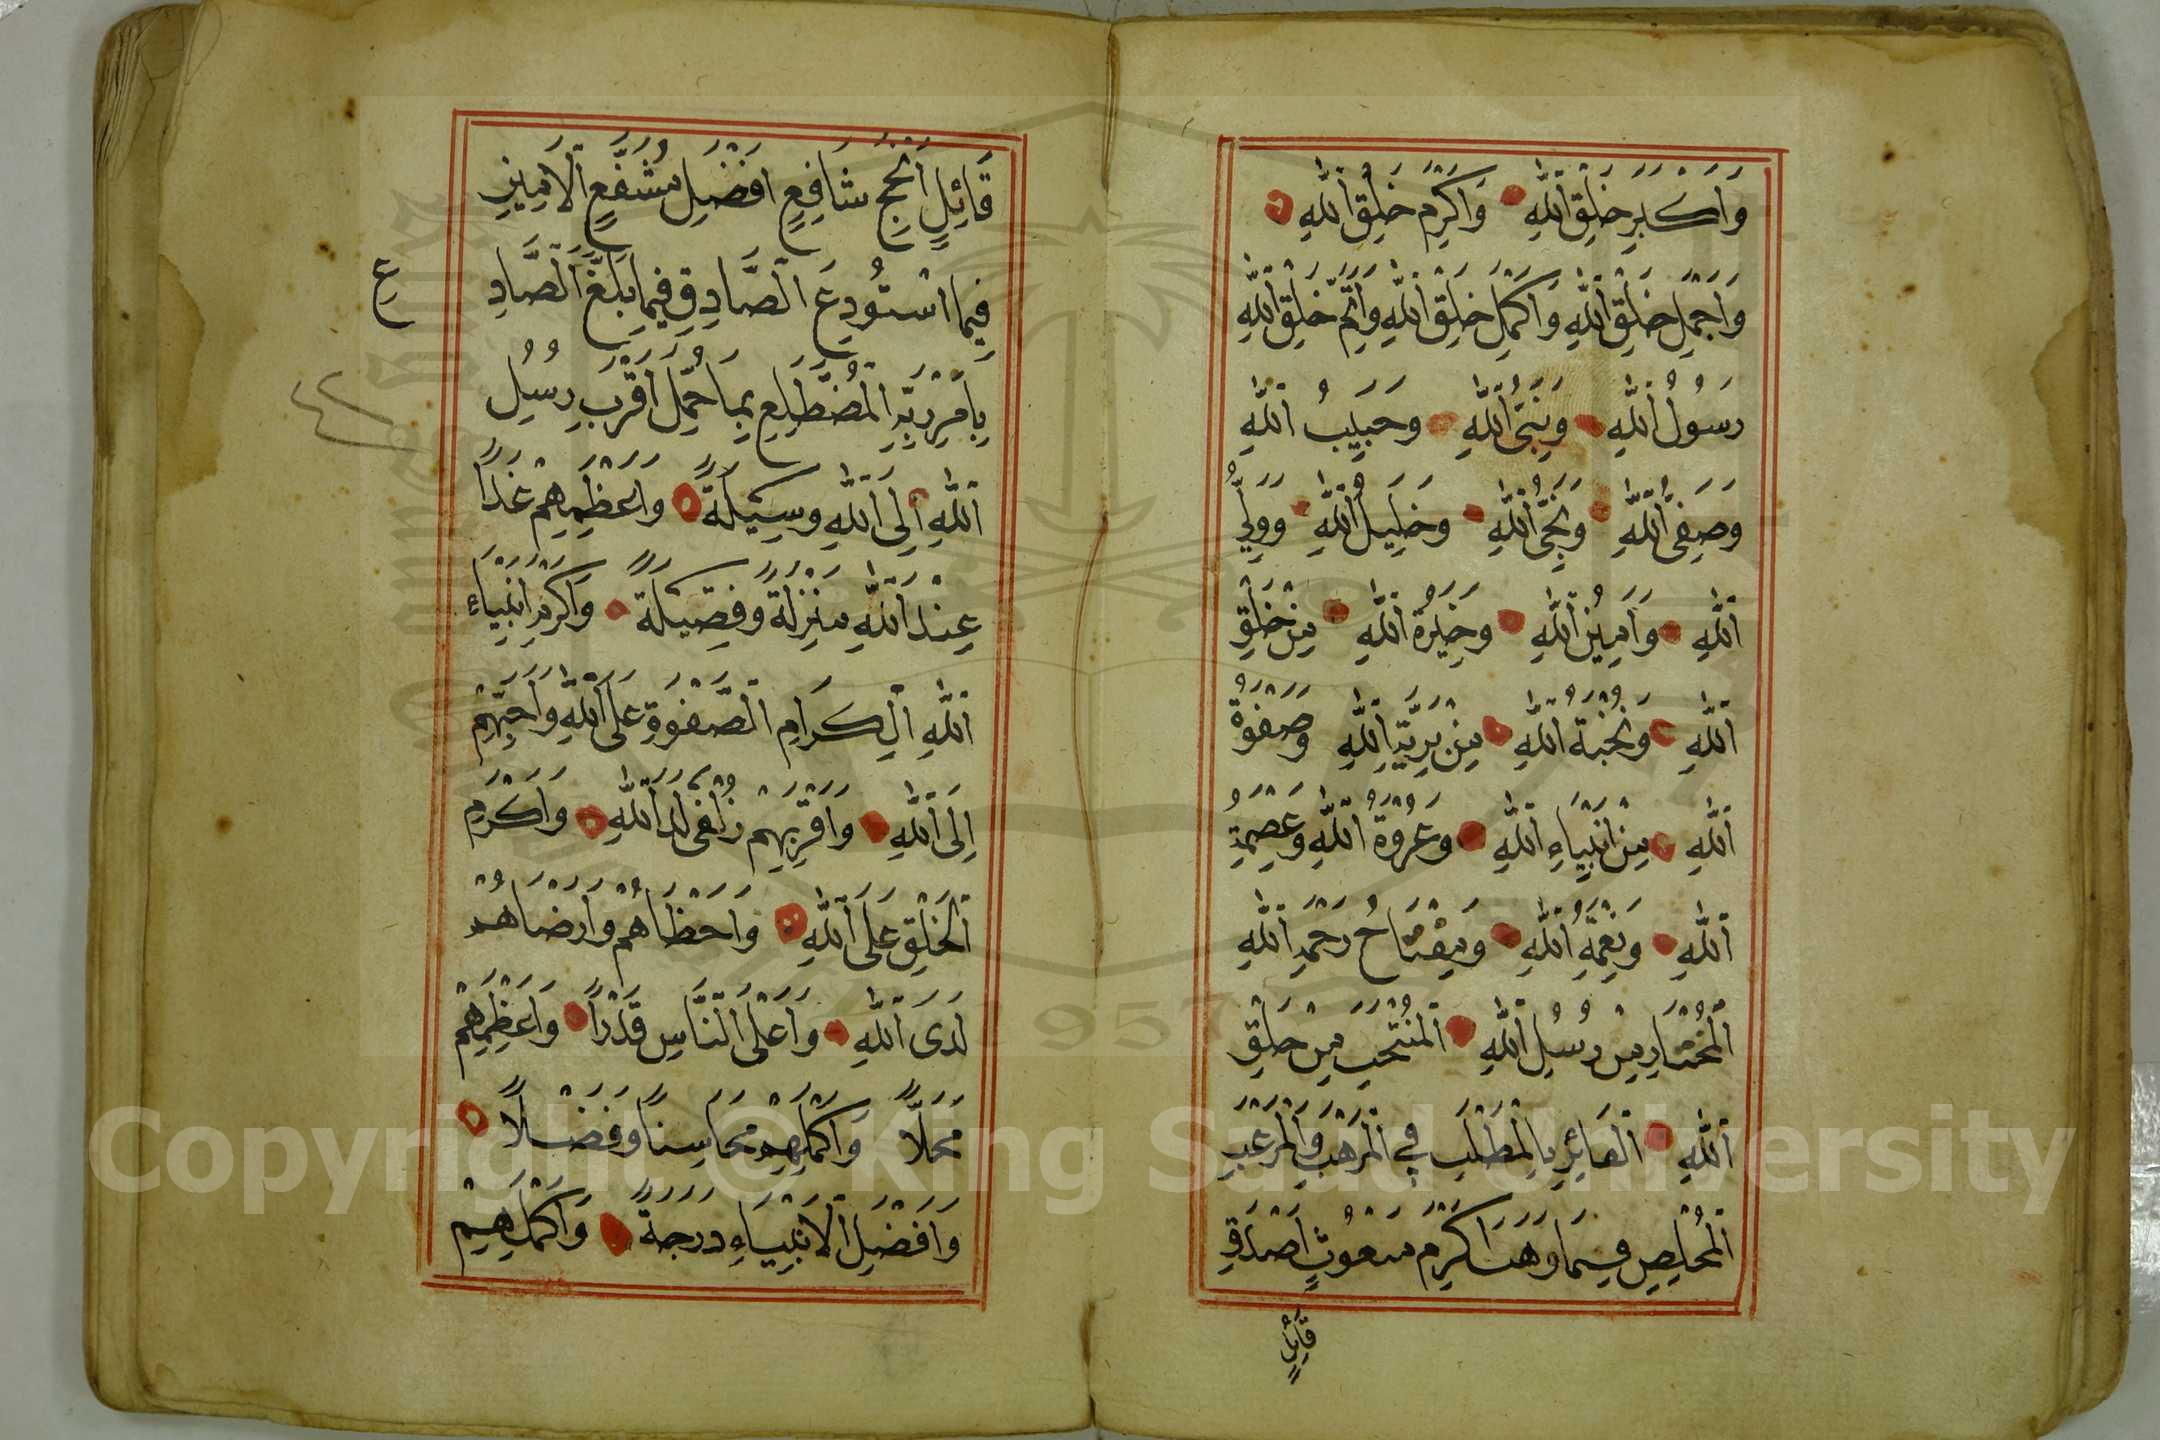 وَاَكْبَرِ خَلْقِ اللّٰهِ وَاَكْرَمِ خَلْقِ اللّٰهِ
وَاَجْمَلِ خَلْقِ اللّٰهِ وَاَكْمَلِ خَلْقِ اللّٰهِ وَاَتَمِّ خَلْقِ اللّٰهِ
رَسُوْلُ اللّٰهِ وَنَبِىُّ اللّٰهِ وَحَبِيْبُ اللّٰهِ
وَصَفِىُّ اللّٰهِ وَنَجِىُّ اللّٰهِ وَخَلِيْلُ اللّٰهِ وَوَلِىُّ
اللّٰهِ وَاَمِيْنُ اللّٰهِ وَخِيْرَةُ اللّٰهِ مِنْ خَلْقِ
اللّٰهِ وَنُخْبَةُ اللّٰهِ مِنْ بَرِيَّةِ اللّٰهِ وَصَفْوَةُ
اللّٰهِ مِنْ اَنْبِيَآءِ اللّٰهِ وَعُرْوَةُ اللّٰهِ وَعِصْمَةُ
اللّٰهِ وَنِعْمَةُ اللّٰهِ وَمِفْتَاحُ رَحْمَةِ اللّٰهِ
الْمُخْتَارِ مِنْ رُسُلِ اللّٰهِ الْمُنْتَخَبِ مِنْ خَلْقِ
اللّٰهِ الْفَائِزِ بِالْمَطْلَبِ فِى الْمَرْهَبِ وَالْمَرْغَبِ
الْمُخْلَصِ فِيْمَا وُهِبَ اَكْرَمِ مَبْعُوْثٍ اَصْدَقِ
قَائِلٍ
قَائِلٍ اَنْجَحِ شَافِعٍ اَفْضَلِ مُشَفَّعٍ الْاَمِيْنِ
فِيْمَا اسْتُوْدِعَ الصَّادِقِ فِيْمَا بَلَّغَ الصَّادِ
ع
بِاَمْرِ رَبِّهِ الْمُضْطَلِعِ بِمَا حُمِّلَ اَقْرَبِ رُسُلِ
اللّٰهِ اِلَى اللّٰهِ وَسِيْلَةً وَاَعْظَمِهِمْ غَدًا
عِنْدَ اللّٰهِ مَنْزِلَةً وَفَضِيْلَةً وَاَكْرَمِ اَنْبِيَآءِ
اللّٰهِ الْكِرَامِ الصَّفْوَةِ عَلَى اللّٰهِ وَاَحَبِّهِمْ
اِلَى اللّٰهِ وَاَقْرَبِهِمْ زُلْفٰى لَدَ اللّٰهِ وَاَكْرَمِ
الْخَلْقِ عَلَى اللّٰهِ وَاَحْظَاهُمْ وَاَرْضَاهُمْ
لَدَى اللّٰهِ وَاَعْلَى النَّاسِ قَدْرًا وَاَعْظَمِهِمْ
مَحَلًّا وَاَكْمَلِهِمْ مَحَاسِنًا وَفَضْلًا
وَاَفْضَلِ الْاَنْبِيَآءِ دَرَجَةً وَاَكْمَلِهِمْ
Copyright © King Saud University
1957